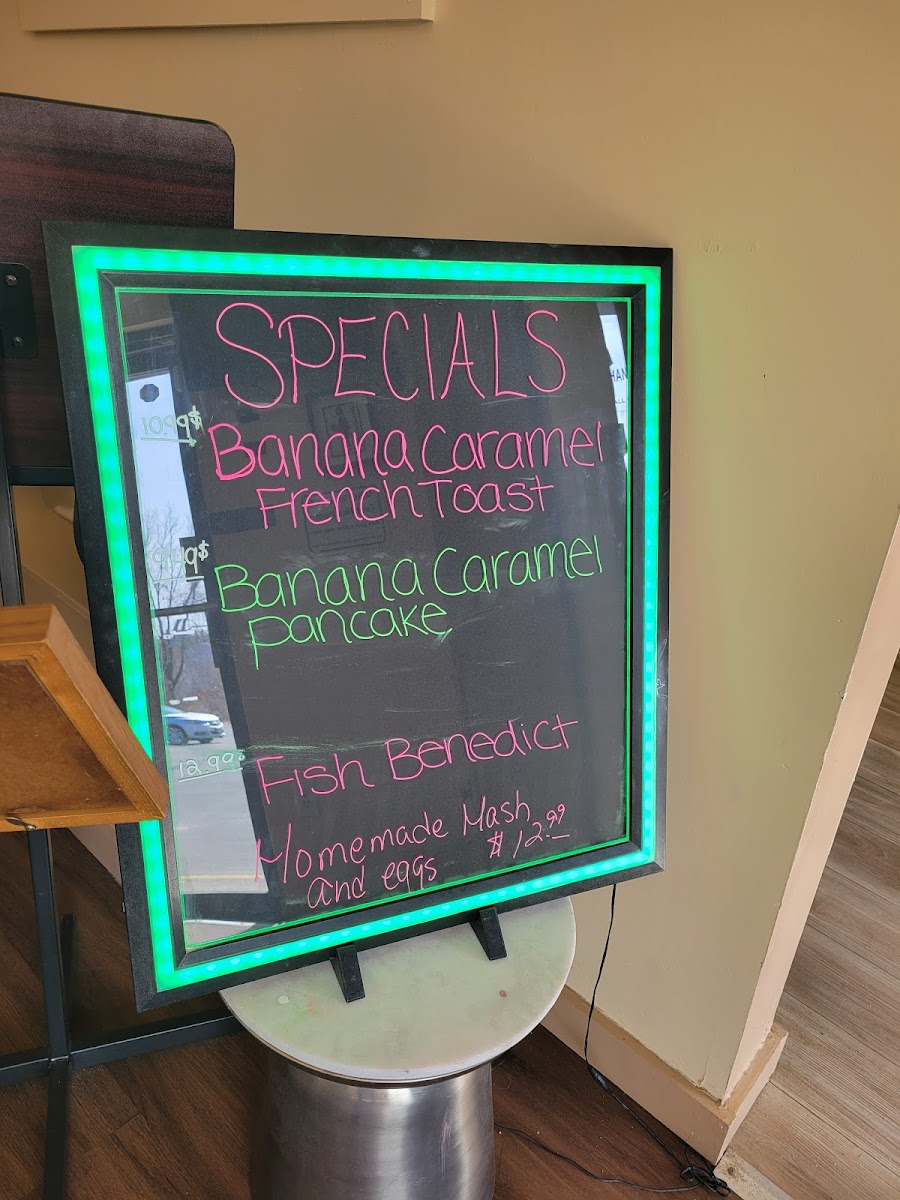 SPECIALS
Banana Caramel
French Toast
Banana Caramel
pancake
12.99
Fish Benedict
Homemade Mash
and eggs $12.99